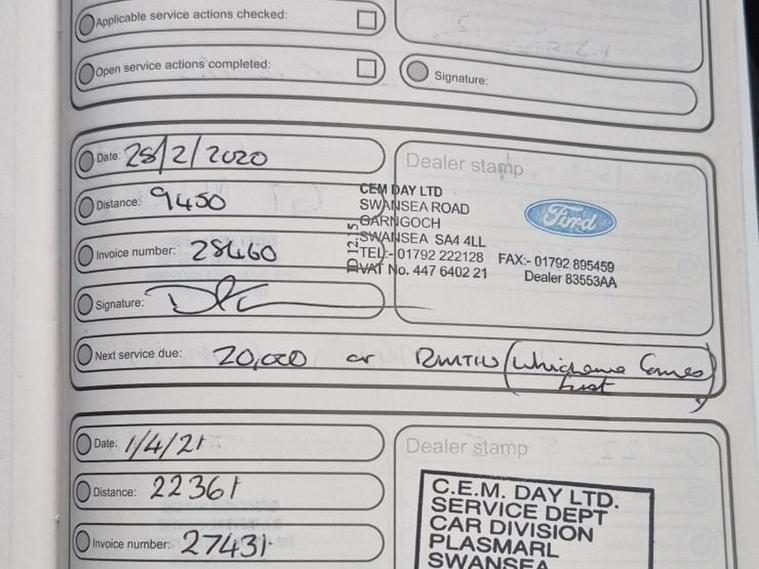 Applicable service actions checked:
Open service actions completed:
Signature:
Date: 28/2/2020
Dealer stamp
Distance: 9450
CEM DAY LTD
SWANSEA ROAD
GARNGOCH
SWANSEA SA4 4LL
TEL:- 01792 222128 FAX:- 01792 895459
VAT No. 447 6402 21 Dealer 83553AA
ID 12.15
Ford
Invoice number: 28460
Signature:
Next service due: 20,000 or 12MTHS (whichever comes
first)
Date: 1/4/21
Dealer stamp
Distance: 22361
Invoice number: 27431
C.E.M. DAY LTD.
SERVICE DEPT
CAR DIVISION
PLASMARL
SWANSEA